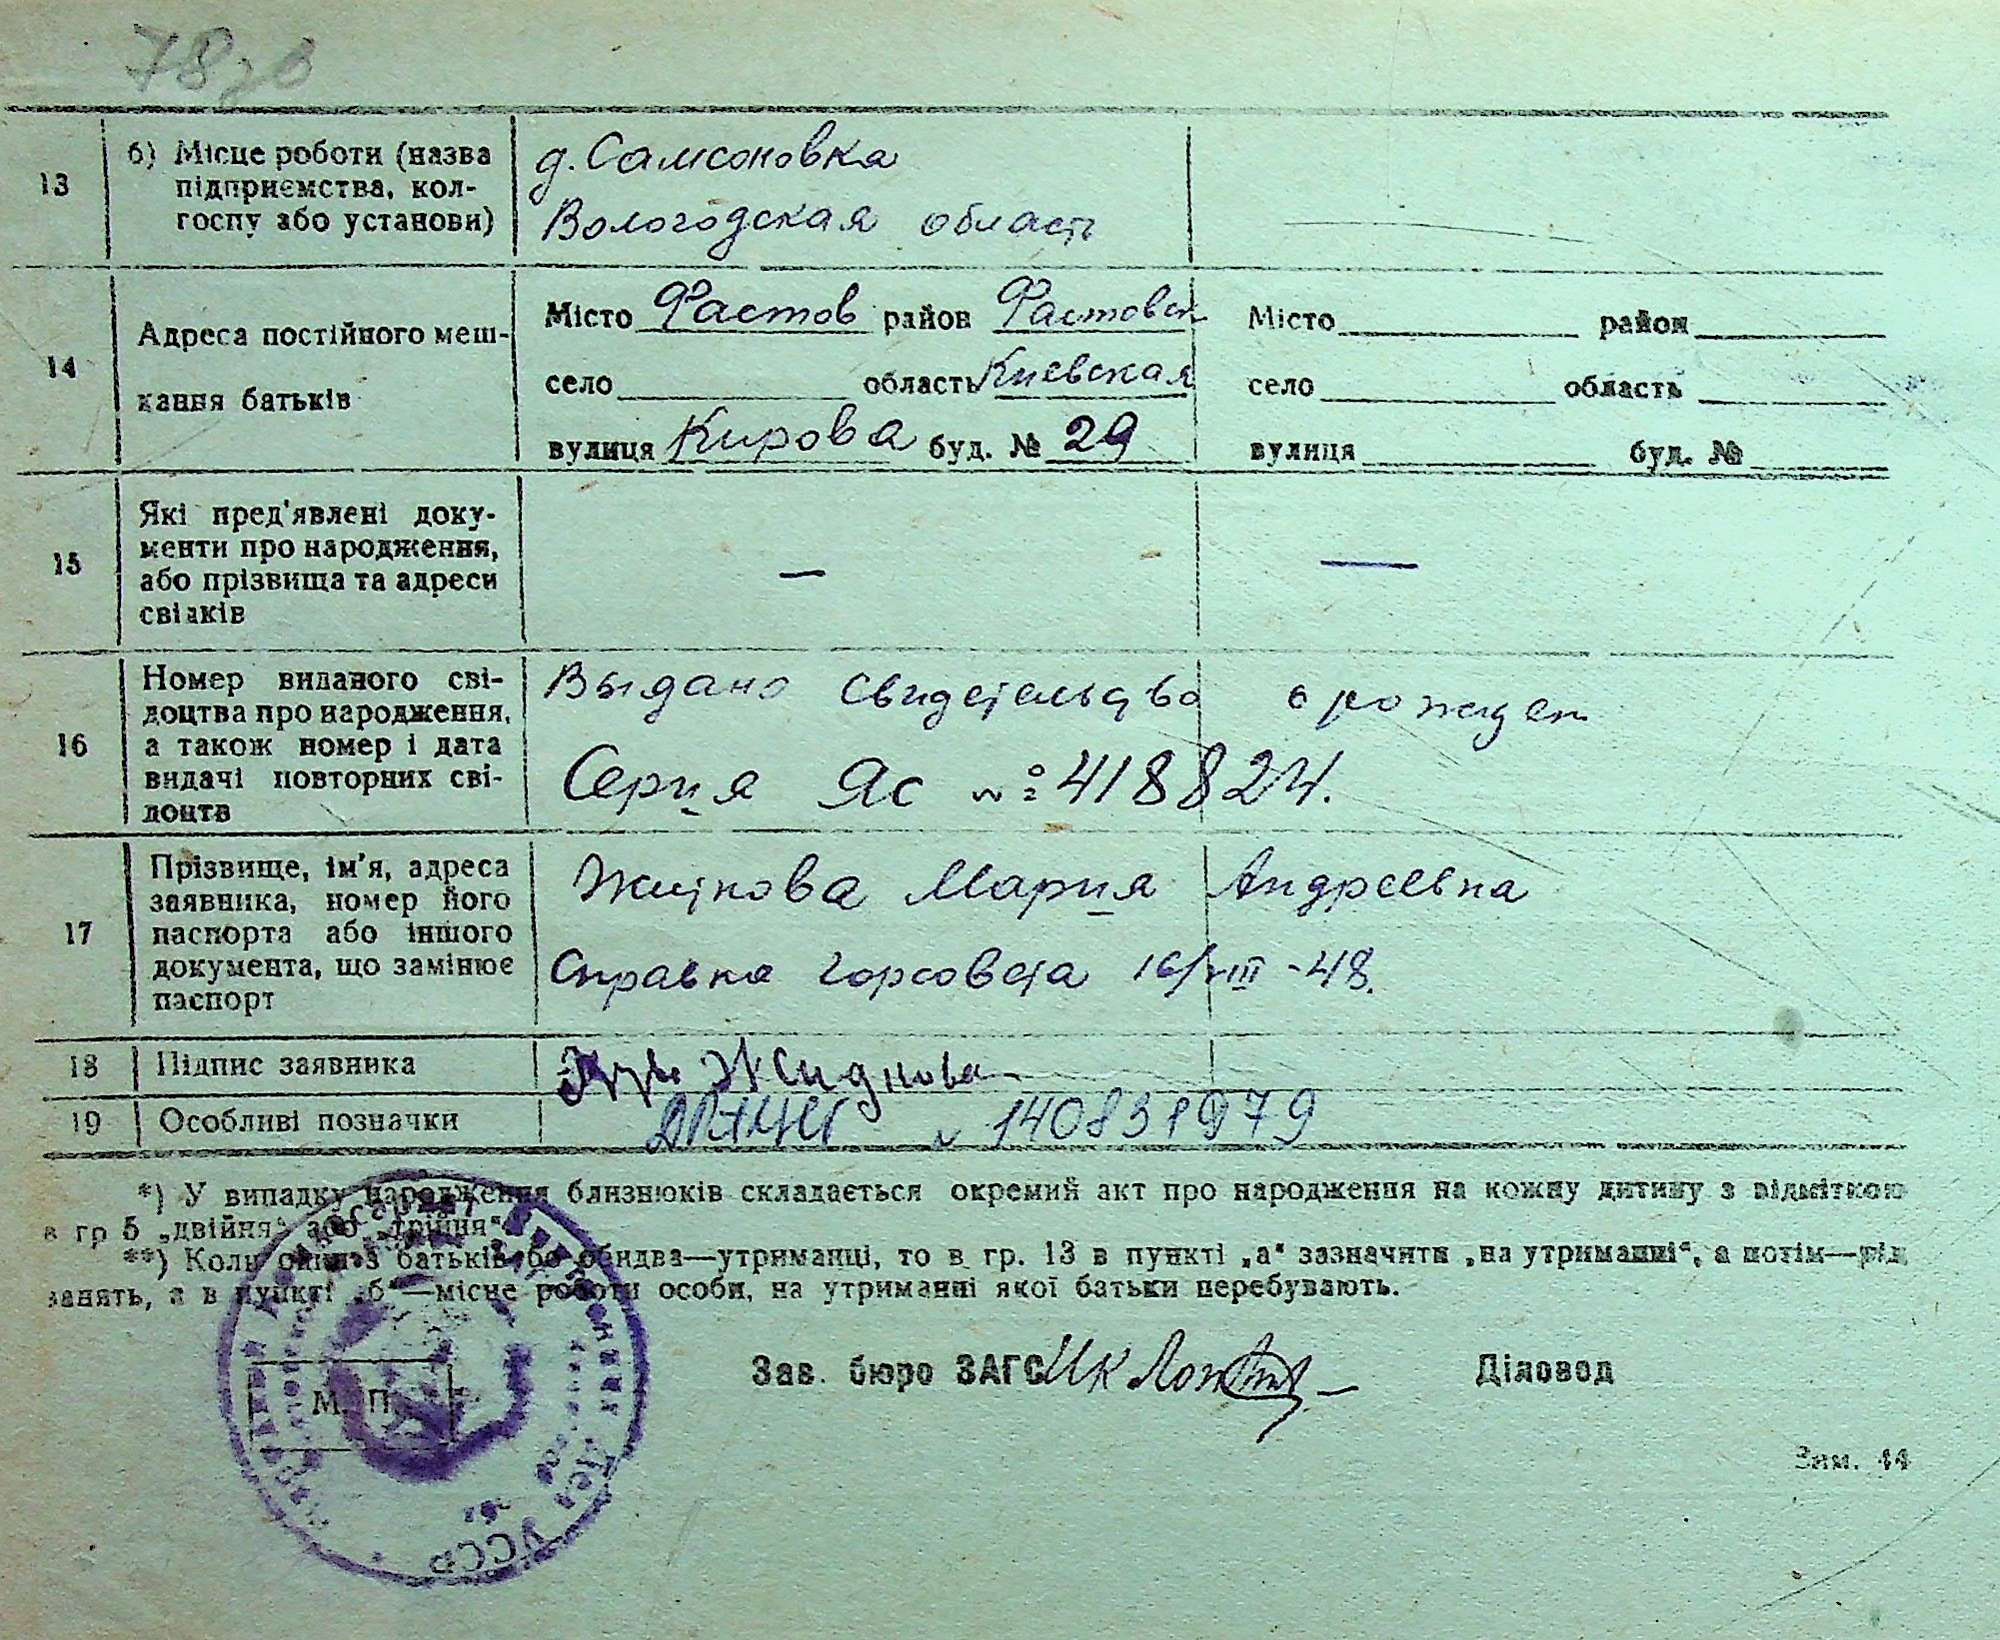 78зв
13
б) Місце роботи (назва
підприємства, кол-
госпу або установи)
д. Самсоновка
Вологодская область
14
Адреса постійного меш-
кання батьків
Місто Фастов район Фастовск
село область Киевская
вулиця Кирова буд. № 29
Місто район
село область
вулиця буд. №
15
Які пред'явлені доку-
менти про народження,
або прізвища та адреси
свідків
—
—
16
Номер виданого сві-
доцтва про народження,
а також номер і дата
видачі повторних сві-
доцтв
Выдано свидетельство о рожден
Серия Яс № 418824.
17
Прізвище, ім'я, адреса
заявника, номер його
паспорта або іншого
документа, що замінює
паспорт
Житкова Мария Андреевна
Справка горсовета 16/VIII-48.
18
Підпис заявника
19
Особливі позначки
№ 140831979
*) У випадку народження близнюків складається окремий акт про народження на кожну дитину з відміткою
в гр 5 „двійня“ або „трійня“.
**) Коли один з батьків або обидва—утриманці, то в гр. 13 в пункті „а“ зазначити „на утриманні“, а потім—рід
занять, а в пункті „б“—місце роботи особи, на утриманні якої батьки перебувають.
М. П.
УССР
Зав. бюро ЗАГС
Діловод
Зам. 44